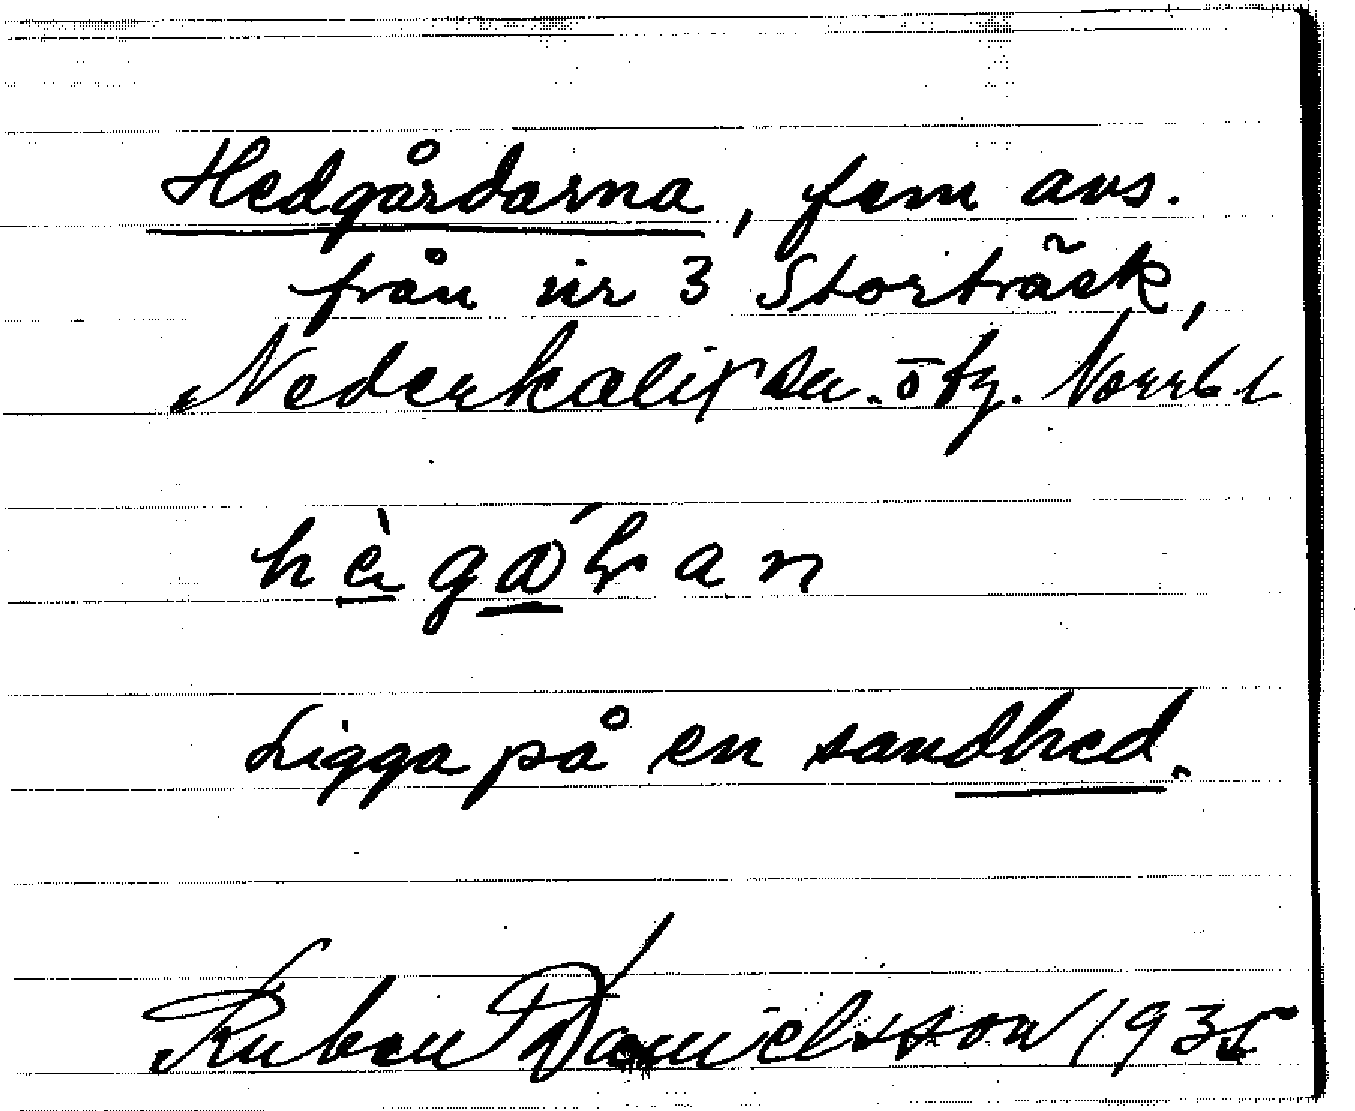 Hedgårdarna, fem avs.
från nr 3 Storträsk,
Nederkalix sn. ö fg. Norrb l
Ligga på en sandhed.
Ruben Danielsson 1935